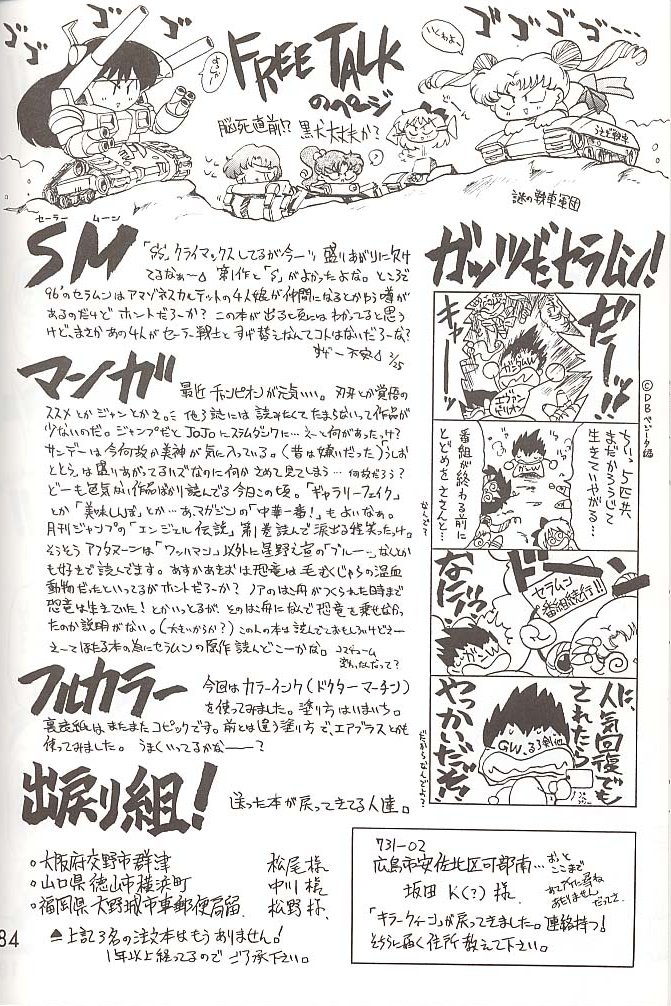 ゴゴゴ…
ゴゴゴゴ…
FREE TALK
のページ
脳死直前!? 黒犬大丈夫か?
謎の戦車軍団
セーラー ムーン
SM
「SS」クライマックスしてるが今一ツ盛りあがりに欠け
てるなぁ~ 第1作と「S」がよかったよな。ところで
96'のセラムンはアマゾネスカルテットの4人娘が仲間になるとかゆう噂が
あるのだけど ホントだろーか? この本が出る頃にはわかってると思う
けど、まさかあの4人がセーラー戦士とすげ替えなんてコトはないだろーな?
すげー不安 2/25
マンガ
最近チャンピオンが元気いい。刃牙とか覚悟の
ススメとかジャンとかさ…。他3誌には読みたくてたまらないって作品が
少ないのだ。ジャンプだとJoJoにスラムダンクに…えーて何があったっけ?
サンデーは今何故か美神が気に入っている。(昔は嫌いだった)うしお
ととらは盛りあがってるハズなのに何かさめて見てしまう…何故だろう?
どーも色気ない作品ばかり読んでる今日この頃。「ギャラリーフェイク」
とか「美味しんぼ」とか…あ、マガジンの「中華一番!」もよいなぁ。
月刊ジャンプの「エンジェル伝説」第1巻読んで涙出る程笑ったっけ。
そうそうアフタヌーンは「ワッハマン」以外に星野之宣の「ブルー〜」なんとか
も好きで読んでます。あすかあきおは恐竜は毛むくじゃらの温血
動物だったといってるがホントだろーか? ノアのはこ舟がつくられた時まで
恐竜は生きていた!とかいっとるが、そのはこ舟になんで恐竜を乗せなかっ
たのか説明がない。(大きいからか?)この人の本は読んでておもしろいけどさー
えーてほたる本の為にセラムンの原作読んどこーかな。
フルカラー
今回はカラーインク(ドクターマーチン)
を使ってみました。塗り方はいまいち。
裏表紙はまたまたコピックです。前とは違う塗り方で、エアブラスとかも
使ってみました。うまくいってるかな———?
出戻り組!
送った本が戻ってきてる人達。
○大阪府交野市群津 松尾様
○山口県徳山市横浜町 中川様
○福岡県大野城市東郵便局留 松野様
▲上記3名の注文本はもうありません!
1年以上経ってるのでご了承下さい。
731-02
広島市安佐北区可部南…
おっと
ここまで
坂田K(?)様
「キラークイーン」が戻ってきました。連絡待つ!
そちらに届く住所教えて下さい。
ガッツだセラムン!
ゼーッ!!
キャー
ガンダムW
エヴァンゲリオン
©DBベジータ編
ちいっ、5匹共
まだかろうじて
生きていやがる…
番組が終わる前に
とどめをささんと…
なんで?
ドーン
セラムン
番組続行!!
なにィっ!
人気回復でも
されたら
やっかいだぞ!
GW、るろ剣他
だからなんでよ?
84